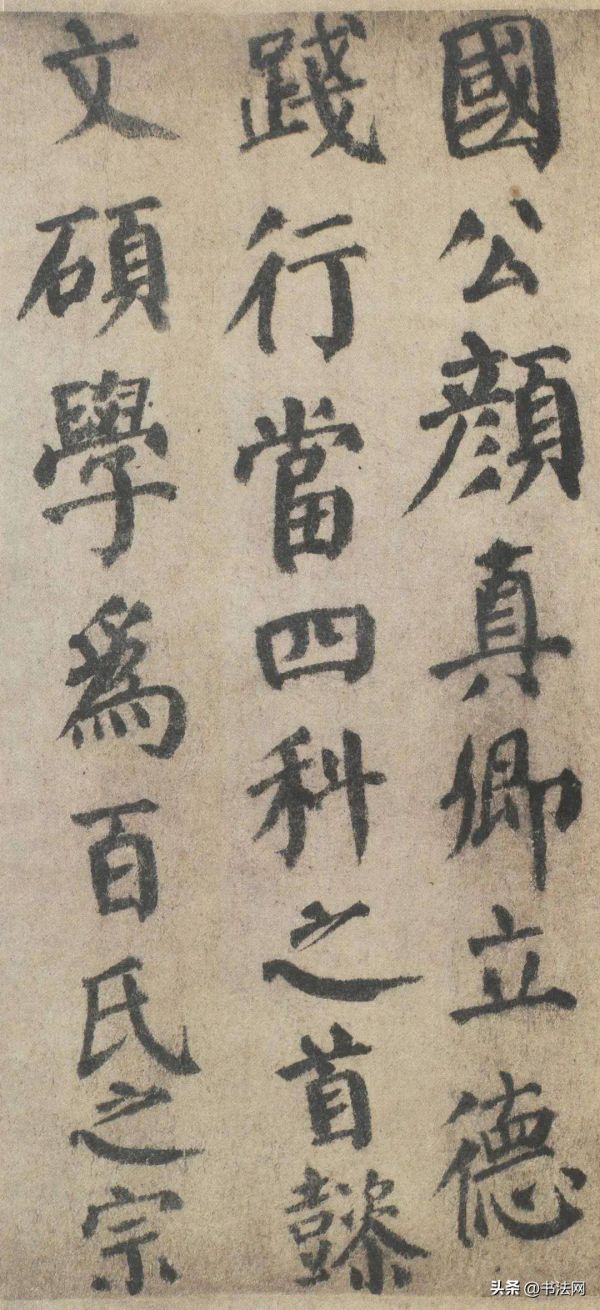 國公顏真卿立德
踐行當四科之首懿
文碩學為百氏之宗
头条 @书法网